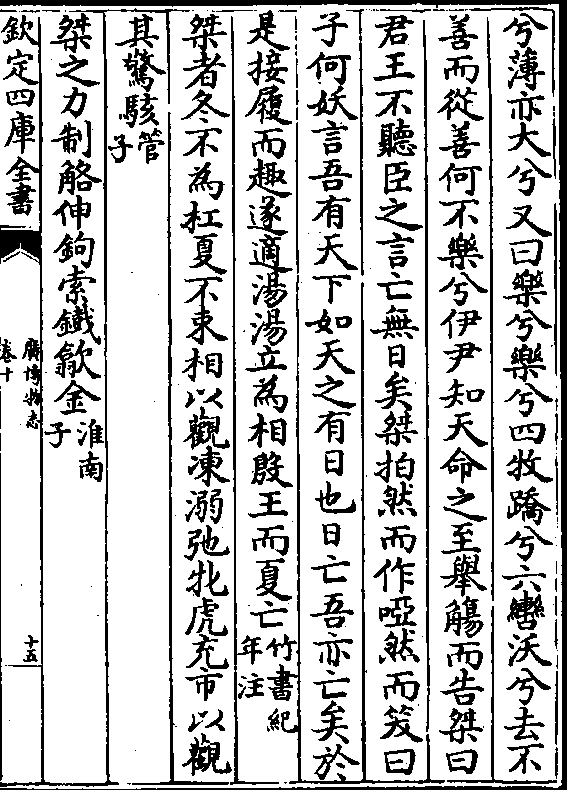 兮薄亦大兮又曰樂兮樂兮四牧蹻兮六轡沃兮去不
善而從善何不樂兮伊尹知天命之至舉觴而告桀曰
君王不聽臣之言亡無日矣桀拍然而作啞然而笑曰
子何妖言吾有天下如天之有日也日亡吾亦亡矣於
是接履而趣遂適湯湯立為相殷王而夏亡竹書紀年注
桀者冬不為杠夏不束柎以觀凍溺弛牝虎充市以觀
其驚駭管子
桀之力制觡伸鉤索鐵歙金淮南子
欽定四庫全書
廣博物志
卷十
十五